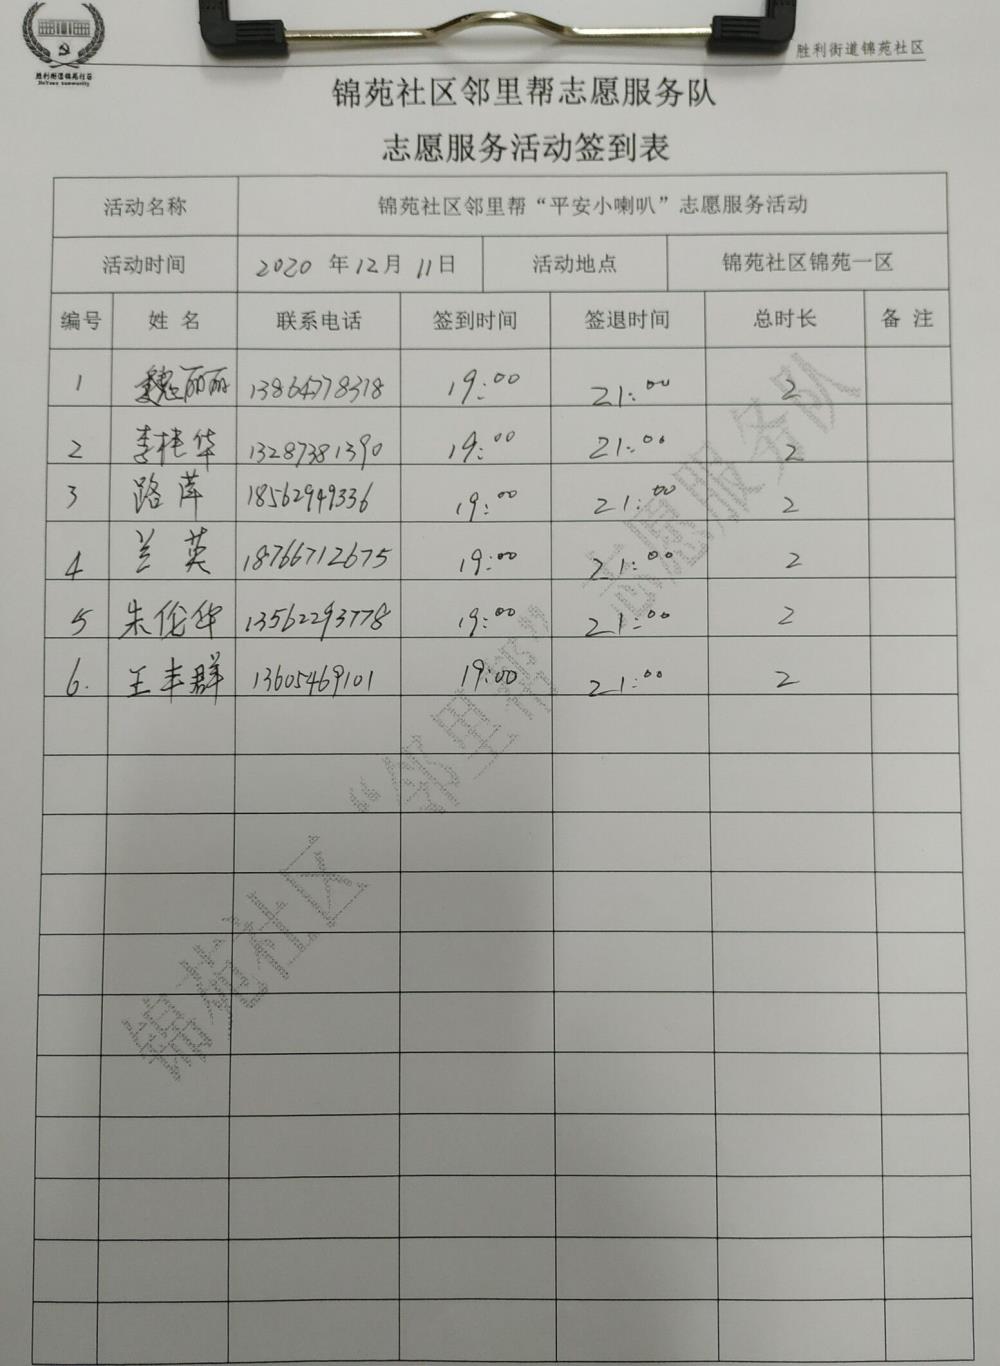 胜利街道锦苑社区
锦苑社区邻里帮志愿服务队
志愿服务活动签到表
活动名称 锦苑社区邻里帮“平安小喇叭”志愿服务活动
活动时间 2020 年 12 月 11 日 活动地点 锦苑社区锦苑一区
编号 姓 名 联系电话 签到时间 签退时间 总时长 备 注
1 魏丽丽 13864778318 19:00 21:00 2
2 李桂华 13287381390 19:00 21:00 2
3 路萍 18562949336 19:00 21:00 2
4 兰英 18766712675 19:00 21:00 2
5 朱伦华 13562293778 19:00 21:00 2
6. 王丰群 13605469101 19:00 21:00 2
锦苑社区“邻里帮”志愿服务队